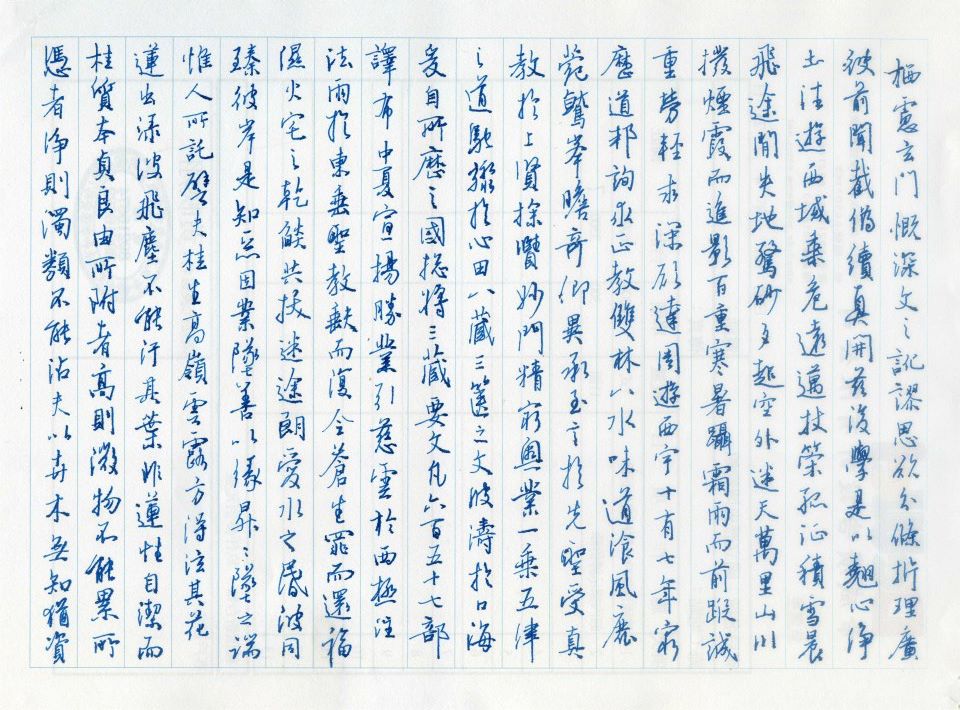 栖慮玄門慨深文之訛謬思欲分條析理廣
彼前聞截偽續真開茲後學是以翹心淨
土往遊西域乘危遠邁杖策孤征積雪晨
飛途閒失地驚砂夕起空外迷天萬里山川
撥煙霞而進影百重寒暑躡霜雨而前蹤誠
重勞輕求深願達周遊西宇十有七年窮
歷道邦詢求正教雙林八水味道飡風鹿
菀鷲峯瞻奇仰異承至言於先聖受真
教於上賢探賾妙門精窮奧業一乘五律
之道馳驟於心田八藏三篋之文波濤於口海
爰自所歷之國總將三藏要文凡六百五十七部
譯布中夏宣揚勝業引慈雲於西極注
法雨於東垂聖教缺而復全蒼生罪而還福
濕火宅之乾燄共拔迷途朗愛水之昏波同
臻彼岸是知惡因業墜善以緣昇〻墜之端
惟人所託譬夫桂生高嶺雲露方得泫其花
蓮出淥波飛塵不能汙其葉非蓮性自潔而
桂質本貞良由所附者高則微物不能累所
憑者淨則濁類不能沾夫以卉木無知猶資